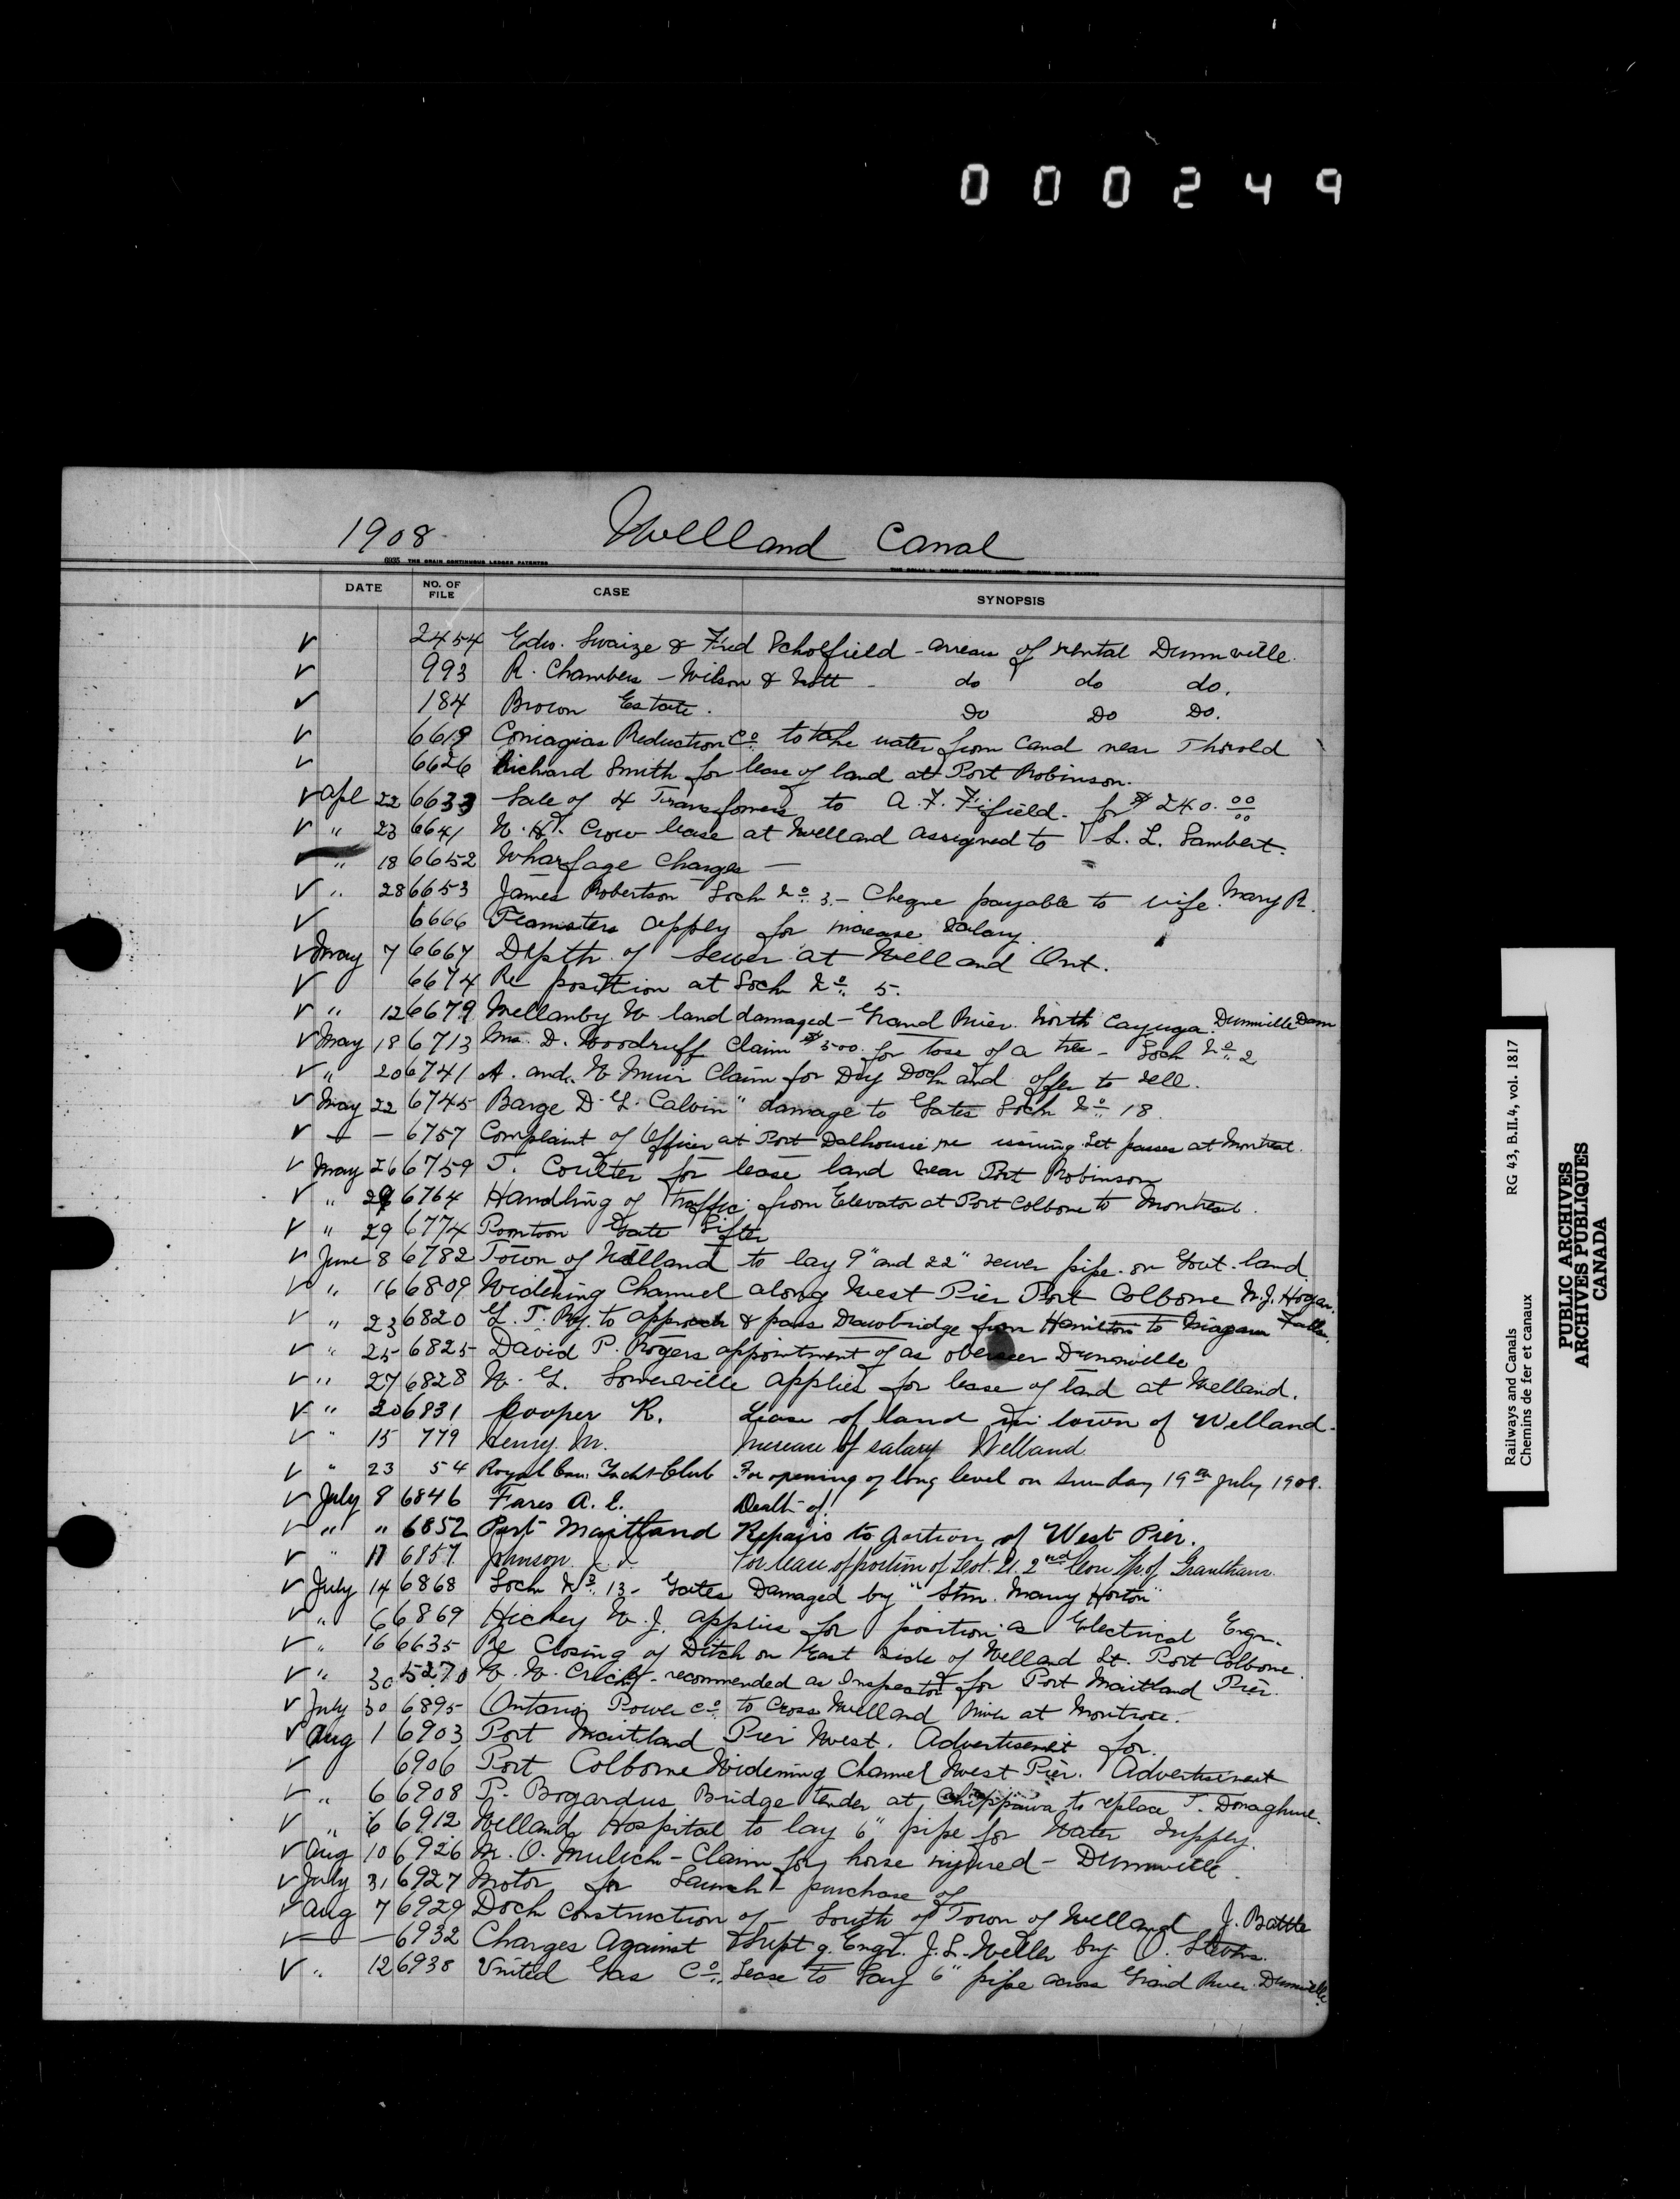 000249
1908 Welland Canal
DATE NO. OF FILE CASE SYNOPSIS
✓ 2454 Edw. Swaize & Fred Scholfield - arrears of rental Dunnville.
✓ 993 R. Chambers - Wilson & Nott - do do do.
✓ 184 Brown Estate. Do Do Do.
✓ 6619 Coniagas Reduction Co. to take water from Canal near Thorold
✓ 6626 Richard Smith for lease of land at Port Robinson.
✓ Apl 22 6633 Sale of 4 Transformers to A. F. Fifield. for $240.00
✓ " 23 6641 W. H. Crow lease at Welland assigned to L. L. Lambert.
" 18 6652 Wharfage Charges —
✓ " 28 6653 James Robertson Lock No. 3. - Cheque payable to wife Mary R.
✓ 6666 Teamsters apply for increase salary.
✓ May 7 6667 Depth of Sewer at Welland Ont.
✓ 6674 Re position at Lock No. 5.
✓ " 12 6679 Mellanby W. land damaged - Grand River. North Cayuga. Dunnville Dam
✓ May 18 6713 Mrs. D. Woodruff Claim $500. for lose of a tree - Lock No. 2
✓ " 20 6741 A. and W. Muir Claim for Dry Dock and offer to sell.
✓ May 22 6745 Barge D. G. Calvin" damage to Gates Lock No. 18.
✓ — — 6757 Complaint of Officer at Port Dalhousie re issuing Let passes at Montreal.
✓ May 26 6759 T. Coulter for lease land near Port Robinson
✓ " 29 6764 Handling of Traffic from Elevator at Port Colborne to Montreal.
✓ " 29 6774 Poontoon Gate Lifter
✓ June 8 6782 Town of Welland to lay 9" and 22" sewer pipe. on Govt. land
✓ " 16 6809 Widening Channel along West Pier Port Colborne M. J. Hogan.
✓ " 23 6820 G. T. Ry. to approach & pass Drawbridge from Hamilton to Niagara Falls.
✓ " 25 6825 David P. Rogers appointment of as overseer Dunnville
✓ " 27 6828 W. G. Somerville applies for lease of land at Welland.
✓ " 20 6831 Cooper R. Lease of land in town of Welland.
✓ " 15 779 Henry. M. Increase of salary Welland
✓ " 23 54 Royal Can. Yacht Club For opening of long level on Sunday 19th July 1908.
✓ July 8 6846 Fares A. E. Death of.
✓ " " 6852 Port Maitland Repairs to portion of West Pier.
✓ " 11 6857 Johnson For lease of portion of Lot. 21. 2nd Con. Tp. of Grantham.
✓ July 14 6868 Lock No. 13 - Gates Damaged by "Stm. Mary Horton"
✓ " 6 6869 Hickey W. J. applies for position as Electrical Engr.
✓ " 16 6635 Re Closing of Ditch on East side of Welland St. Port Colborne.
✓ " 30 5270 W. W. - recommended as Inspector for Port Maitland Pier.
✓ July 30 6895 Ontario Power Co. to Cross Welland River at Montrose.
✓ Aug 1 6903 Port Maitland Pier West. Advertisement for.
✓ 6906 Port Colborne Widening Channel West Pier. Advertisement
✓ " 6 6908 P. Bogardus Bridge tender at Chippawa to replace T. Donaghue.
✓ " 6 6912 Welland Hospital to lay 6" pipe for Water Supply.
✓ Aug 10 6926 M. O. Mulich - Claim for horse injured - Dunnville.
✓ July 31 6927 Motor for Launch - purchase of
✓ Aug 7 6929 Dock construction of - South of Town of Welland J. Battle
✓ — — 6932 Charges Against Supt'g. Engr. J. L. Weller by O. Stevens.
✓ " 12 6938 United Gas Co. Lease to Lay 6" pipe across Grand River. Dunnville.
Railways and Canals RG 43, B.II.4, vol. 1817
Chemins de fer et canaux
PUBLIC ARCHIVES
ARCHIVES PUBLIQUES
CANADA